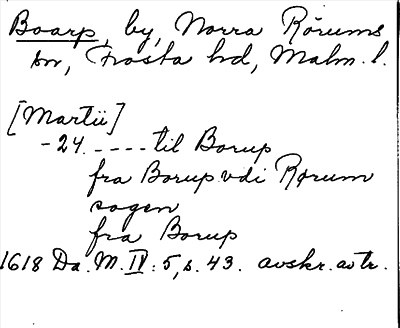 Boarp, by, Norra Rörums
sn, Frosta hd, Malm. l.
[Martii]
-24. - - - - til Borup
fra Borup vdi Rørum
sogen
fra Borup
1618 Da. M. IV: 5, s. 43. avskr. av tr.